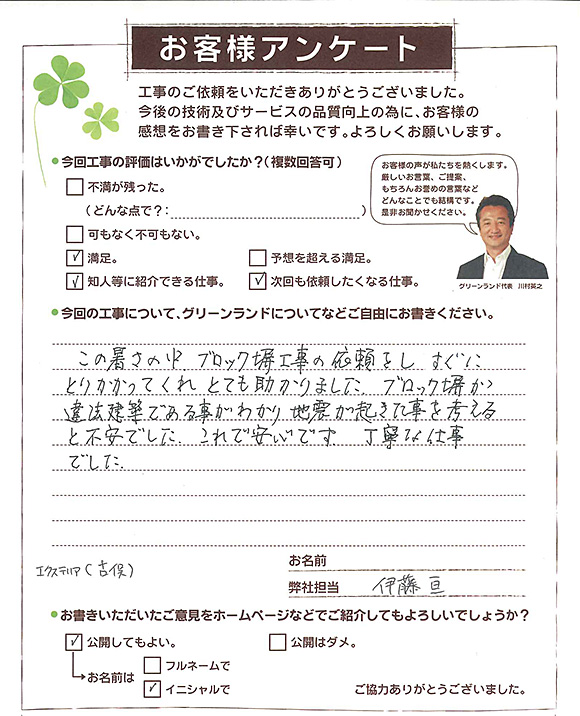 お客様アンケート
工事のご依頼をいただきありがとうございました。
今後の技術及びサービスの品質向上の為に、お客様の
感想をお書き下されば幸いです。よろしくお願いします。
今回工事の評価はいかがでしたか？（複数回答可）
不満が残った。
（どんな点で？：）
可もなく不可もない。
満足。
予想を超える満足。
知人等に紹介できる仕事。
次回も依頼したくなる仕事。
お客様の声が私たちを熱くします。
厳しいお言葉、ご提案、
もちろんお誉めの言葉など
どんなことでも結構です。
是非お聞かせください。
グリーンランド代表 川村英之
今回の工事について、グリーンランドについてなどご自由にお書きください。
この暑さの中 ブロック塀工事の依頼をし すぐに
とりかかってくれ とても助かりました ブロック塀が
違法建築である事がわかり 地震が起きた事を考える
と不安でした これで安心です 丁寧な仕事
でした
エクステリア（吉俣）
お名前
弊社担当 伊藤 亘
お書きいただいたご意見をホームページなどでご紹介してもよろしいでしょうか？
公開してもよい。
公開はダメ。
お名前は
フルネームで
イニシャルで
ご協力ありがとうございました。